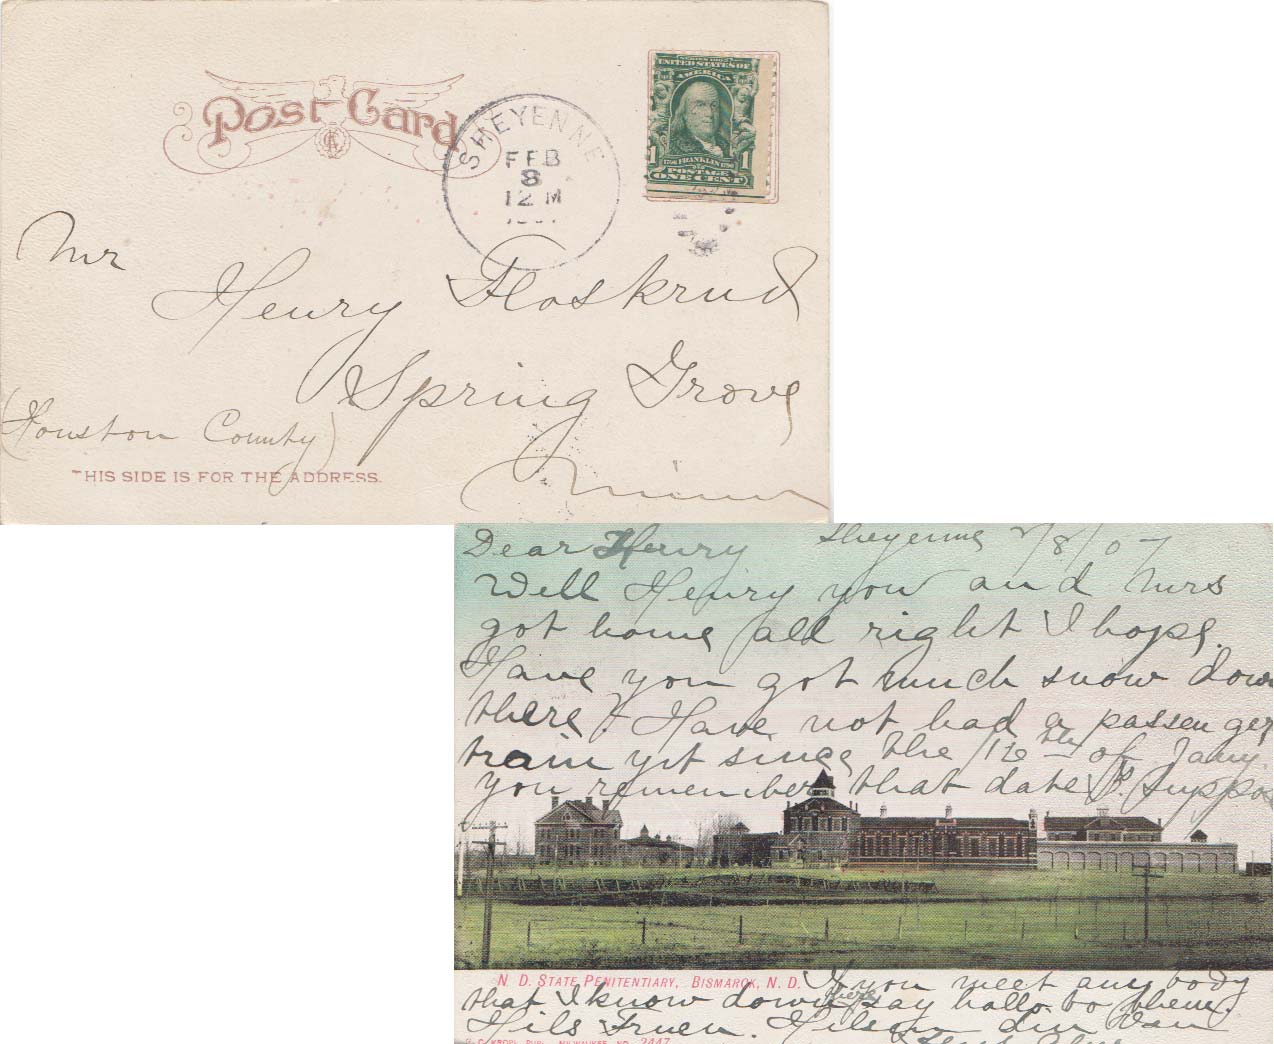 Post Card
SHEYENNE
FEB
8
12 M
SERIES 1902
UNITED STATES OF
AMERICA
1 FRANKLIN 1
POSTAGE
ONE CENT
Mr
Henry Floskrud
Spring Grove
(Houston County)
THIS SIDE IS FOR THE ADDRESS.
Minn
Dear Henry Sheyenne 2/8/07
Well Henry you and Mrs
got home all right I hope.
Have you got much snow down
there? Have not had a passenger
train yet since the 16th of Jany.
you remember that date I suppose
N. D. STATE PENITENTIARY, BISMARCK, N. D.
If you meet any body
that I know down there say hallo to them.
Hils Fruen. Hilsen din Ven
MILWAUKEE NO. 2447